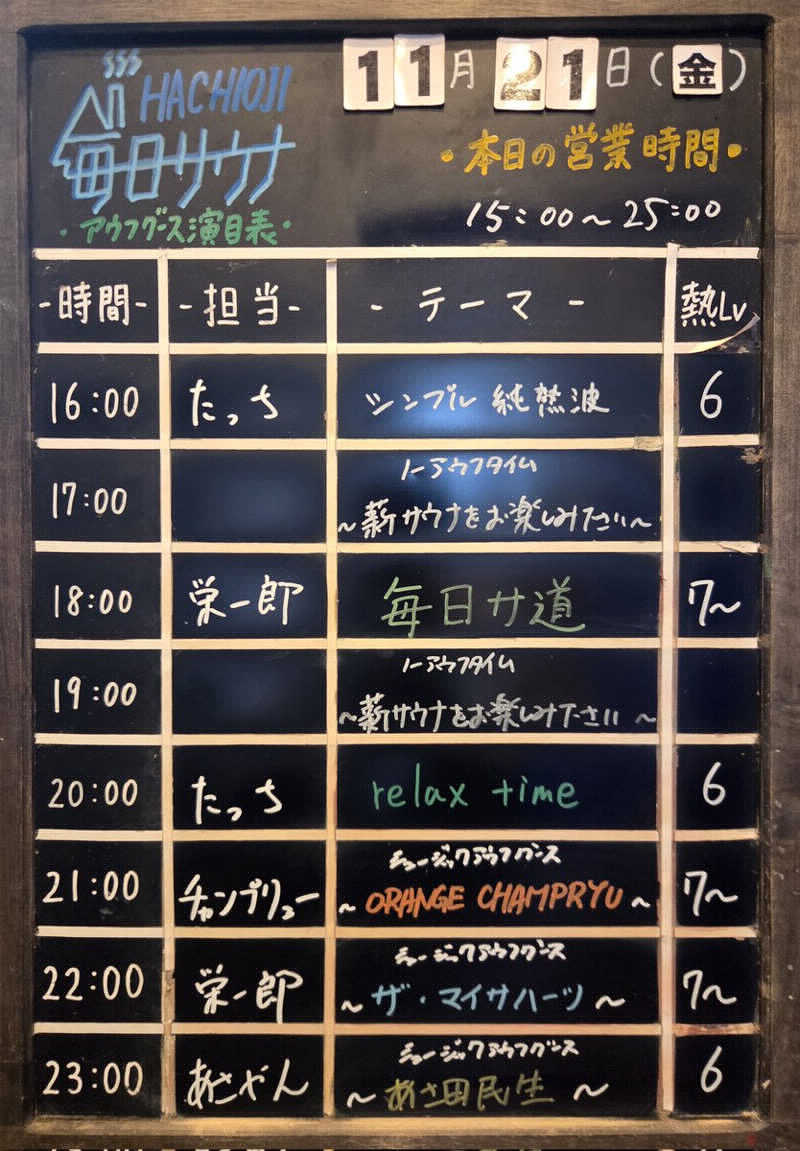 HACHIOJI
毎日サウナ
・アウフグース演目表・
11月21日(金)
・本日の営業時間・
15:00～25:00
-時間- -担当- -テーマ- 熱Lv
16:00 たっち シンプル 純熱波 6
17:00 ノーアウフタイム
～薪サウナをお楽しみ下さい～
18:00 栄一郎 毎日サ道 7～
19:00 ノーアウフタイム
～薪サウナをお楽しみ下さい～
20:00 たっち relax time 6
21:00 チャンプリュー ミュージックアウフグース
～ORANGE CHAMPRYU～ 7～
22:00 栄一郎 ミュージックアウフグース
～ザ・マイサハーツ～ 7～
23:00 あさやん ミュージックアウフグース
～あさ田民生～ 6